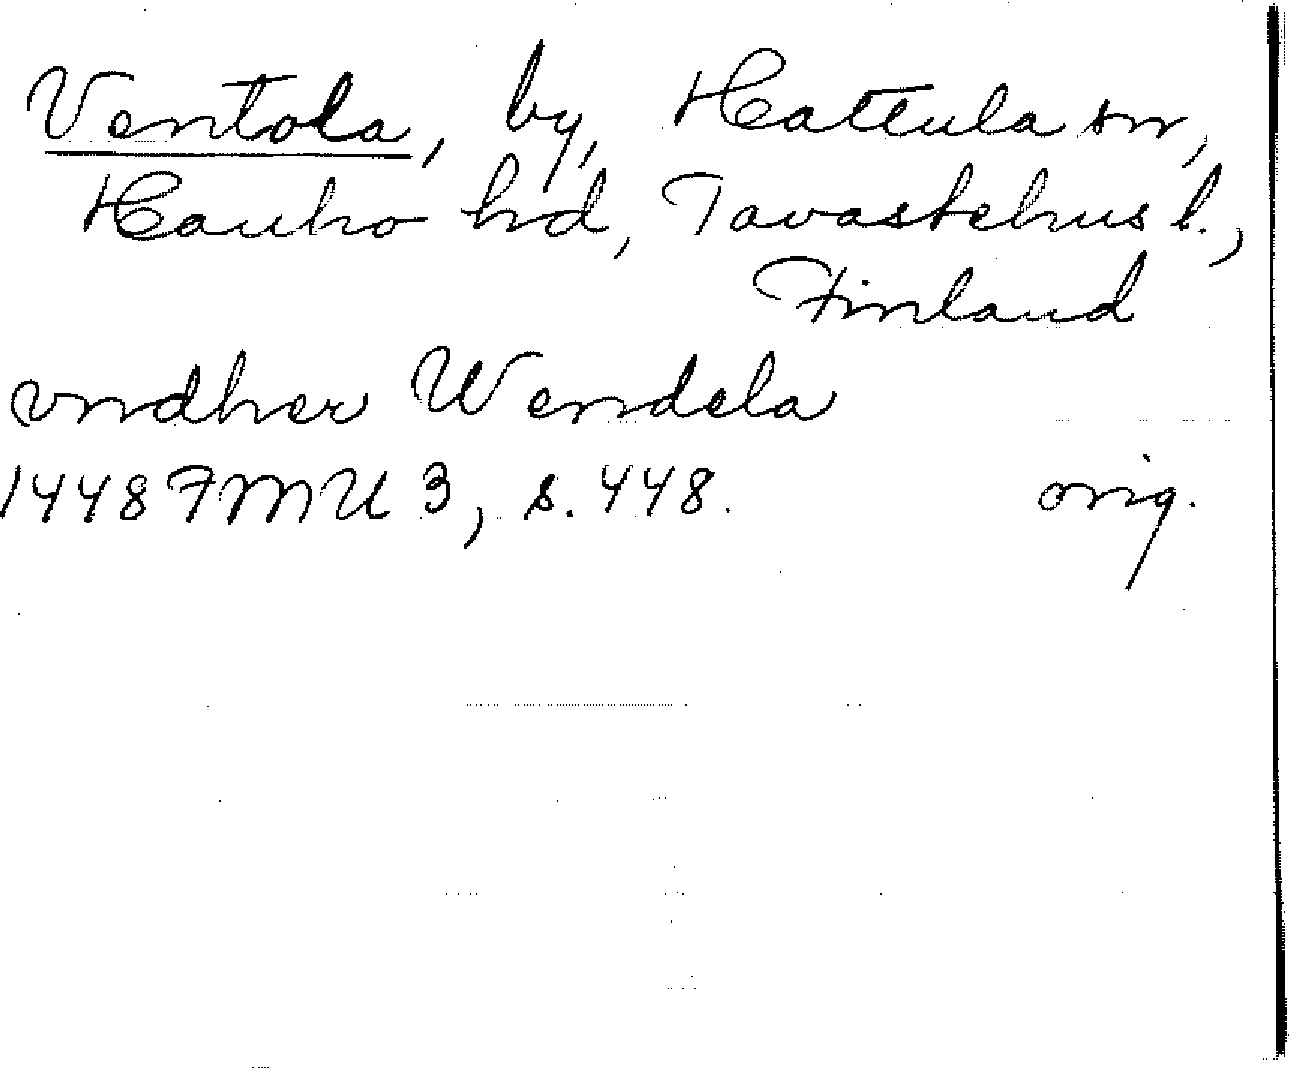 Ventola, by, Hattula sn,
Hauho hd, Tavastehus l.,
Finland
vndher Wendela
1448 FMU 3, s. 448. orig.